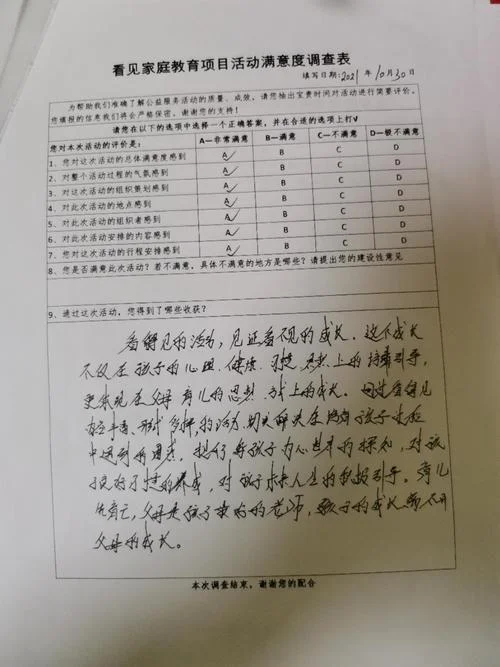 看见家庭教育项目活动满意度调查表
填写日期:2021年10月30日
为帮助我们准确了解公益服务活动的质量、成效,请您抽出宝贵时间对活动进行简要评价。
您填报的信息我们将会严格保密。谢谢您的支持!
请您在以下的选项中选择一个正确答案,并在合适的选项上打√
您对本次活动的评价是: A—非常满意 B—满意 C—不满意 D—极不满意
1、您对这次活动的总体满意度感到 A√ B C D
2、对整个活动过程的气氛感到 A√ B C D
3、对这次活动的组织策划感到 A√ B C D
4、对此次活动的地点感到 A√ B C D
5、对此次活动的组织者感到 A√ B C D
6、对此次活动安排的内容感到 A√ B C D
7、您对这次活动的行程安排感到 A√ B C D
8、您是否满意此次活动?若不满意,具体不满意的地方是哪些?请提出您的建设性意见
9、通过这次活动,您得到了哪些收获?
看得见的活动,见证看不见的成长。这个成长
不仅在孩子的心理、健康、习惯、上的培养引导,
更体现在父母育儿的思想、方式上的成长。通过看得见
形式多样的活动,孩子
中遇到的 。 孩子内心世界的探知,对孩
习惯的养成,对孩子未来人生的积极引导。育儿
先育己,父母是孩子最好的老师,孩子的成长离不开
父母的成长。
本次调查结束,谢谢您的配合